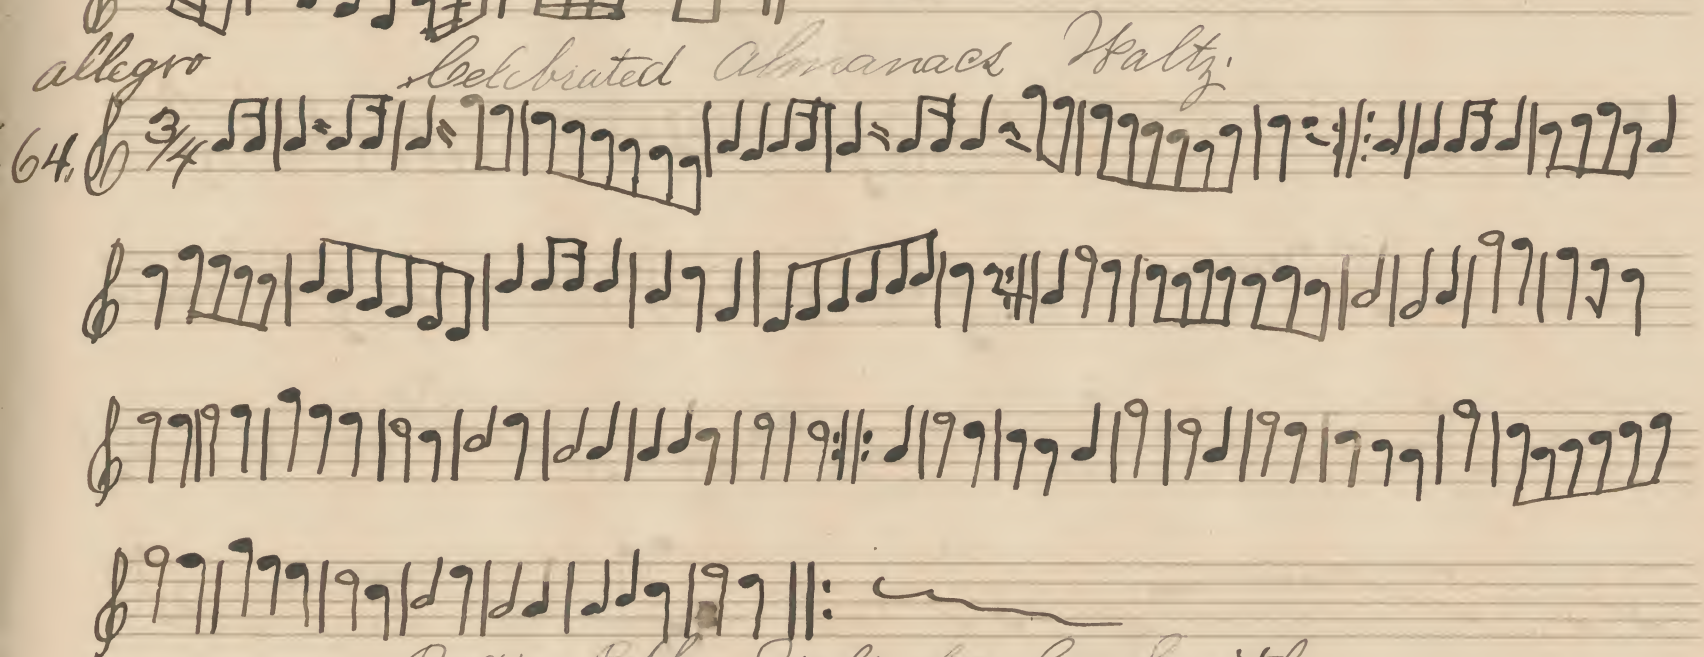 allegro Celebrated Almanacs Waltz.
64. 3/4